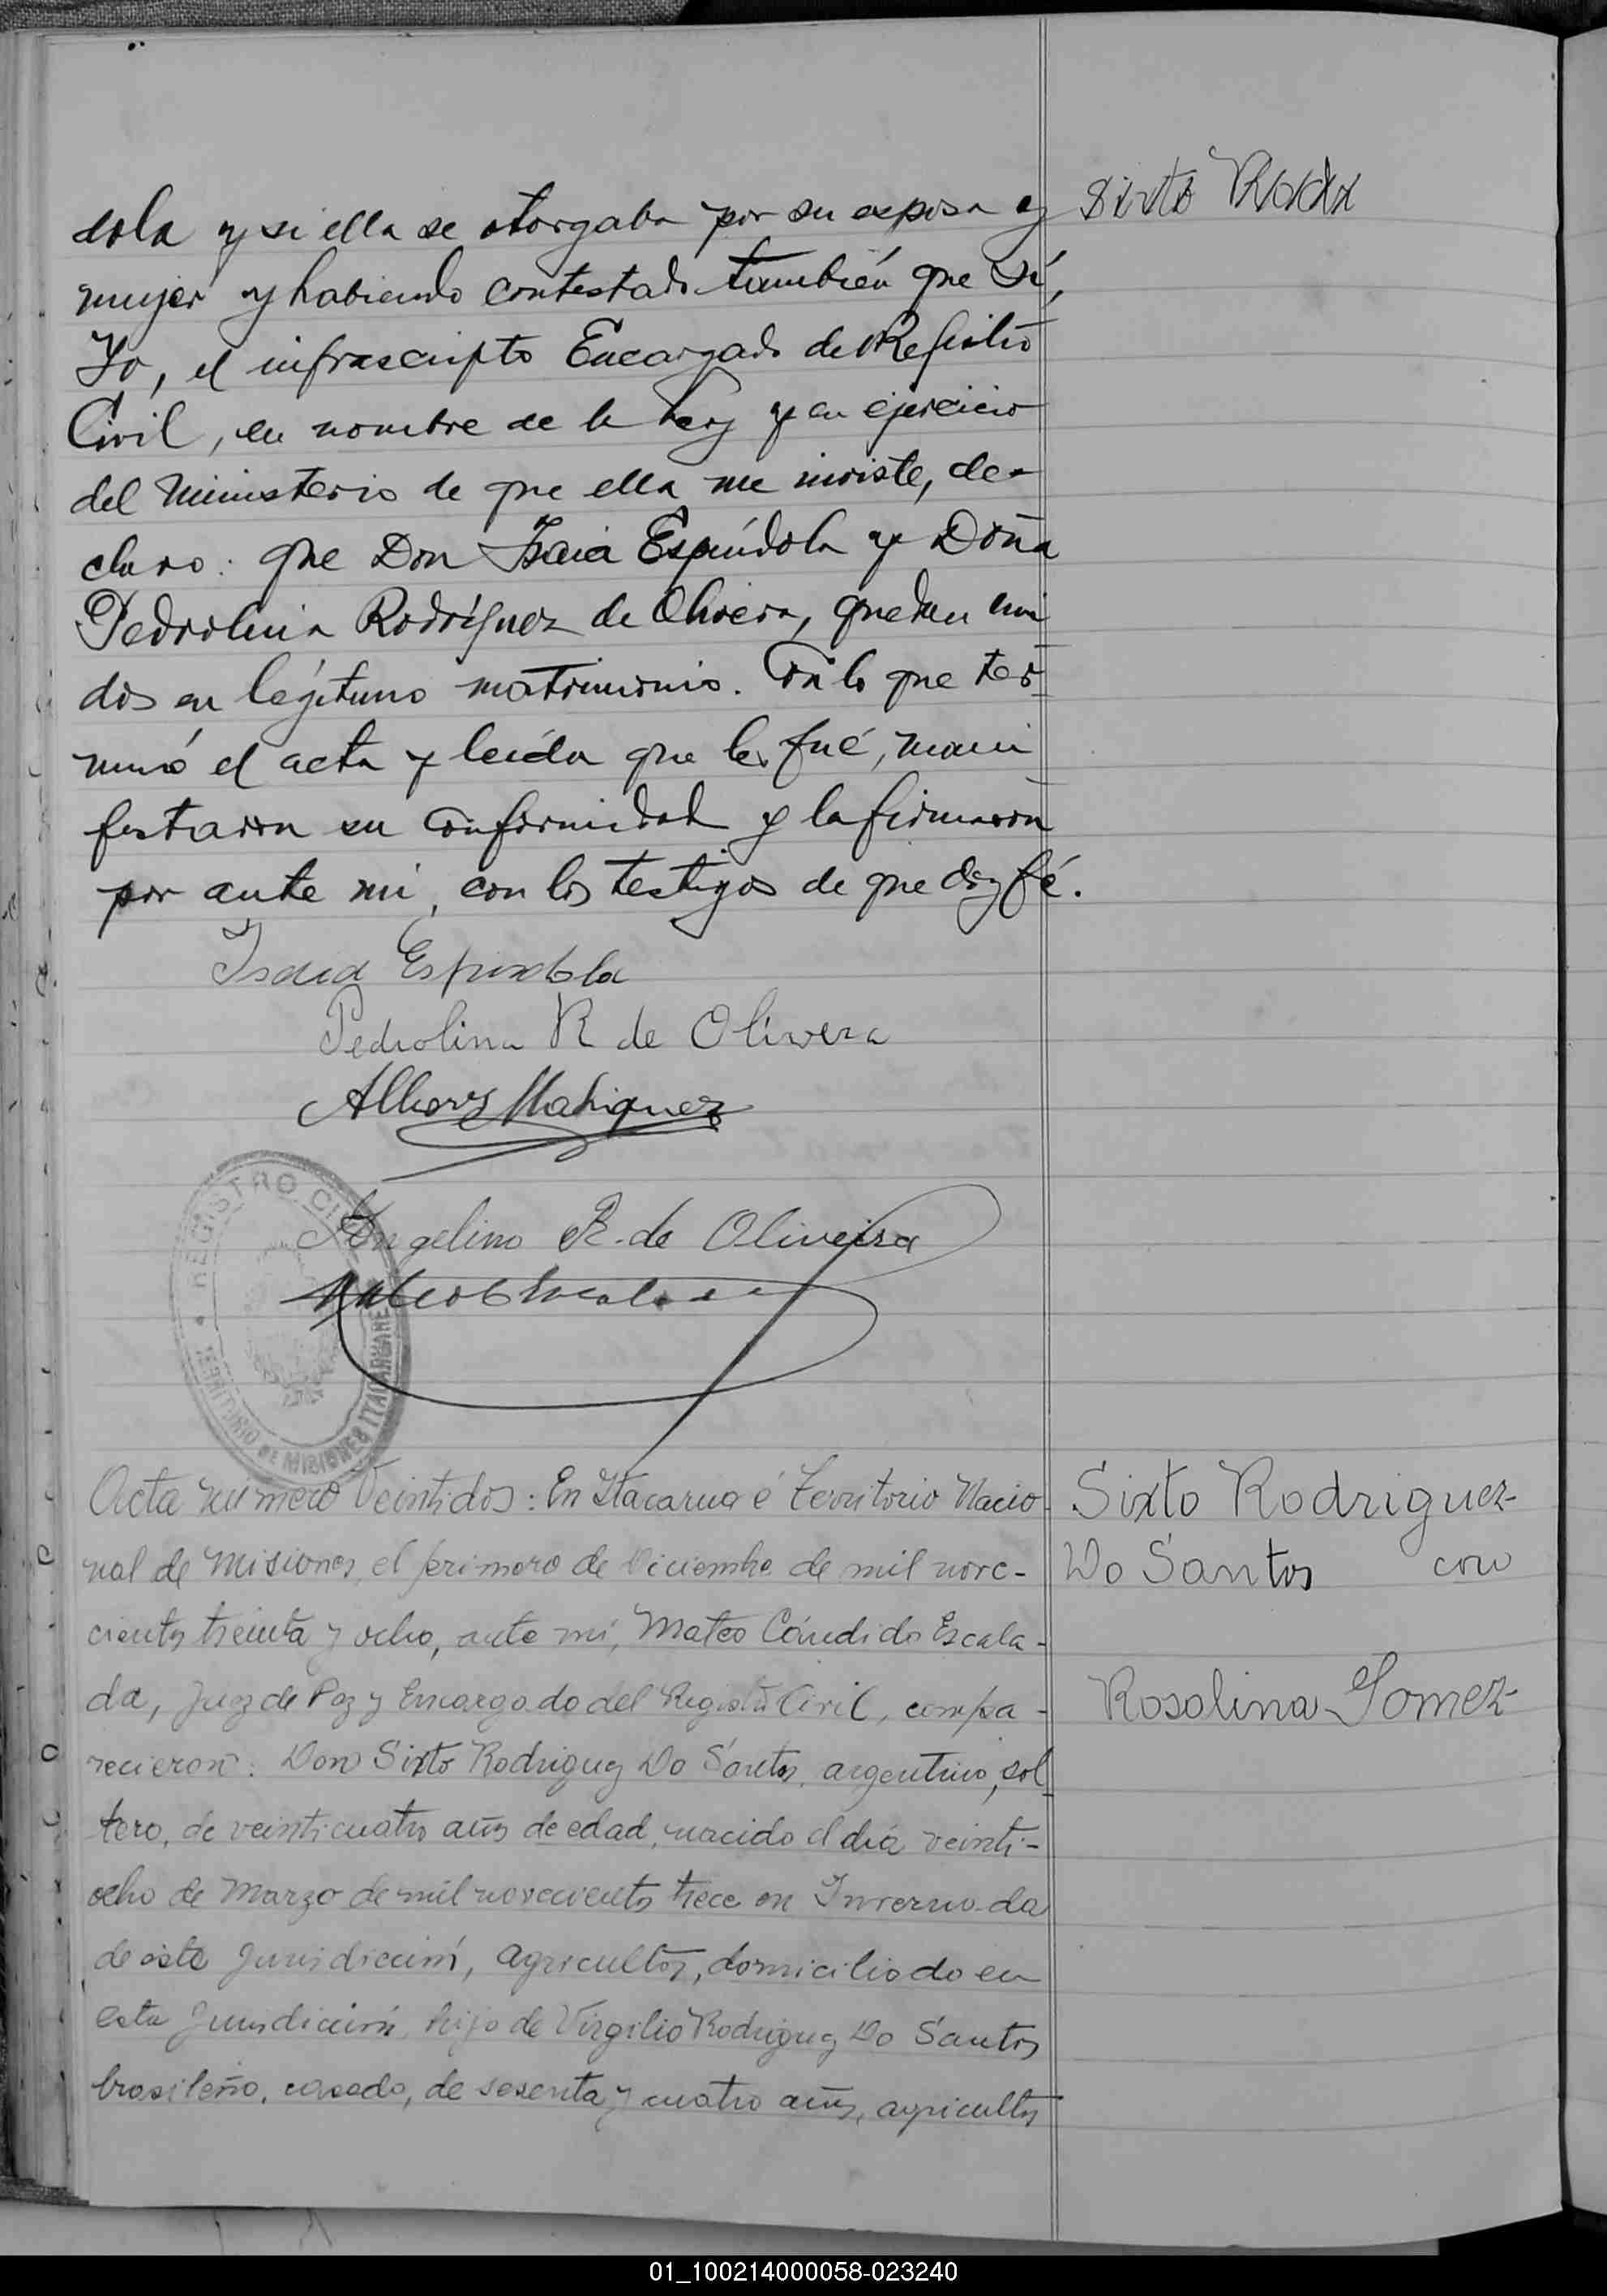 dola y si ella se otorgaba por su esposa y
mujer y habiendo contestado también que sí,
Yo, el infrascripto Encargado del Registro
Civil, en nombre de la Ley y en ejercicio
del Ministerio de que ella me inviste, de-
claro: que Don Isaia Espíndola y Doña
Pedrolina Rodríguez de Olivera, quedan uni
dos en legítimo matrimonio. Con lo que ter-
minó el acta y leída que les fué, mani
festaron su conformidad y la firmaron
por ante mi, con los testigos de que doy fé.
Isaia Espindola
Pedrolina R de Olivera
Angelino R. de Oliveira
REGISTRO CIVIL
TERRITORIO DE MISIONES ITACARUARE
Sixto
Acta número Veintidos: En Itacaruaré Territorio Nacio-
nal de Misiones, el primero de Diciembre de mil nove-
cientos treinta y ocho, ante mí, Mateo Cándido Escala-
da, Juez de Paz y Encargado del Registro Civil, compa-
recieron: Don Sixto Rodriguez Do Santos, argentino, sol
tero, de veinticuatro años de edad, nacido el día veinti-
ocho de Marzo de mil novecientos trece en Invernada
de esta Jurisdicción, agricultor, domiciliado en
esta Jurisdicción, hijo de Virgilio Rodriguez Do Santos
brasileño, casado, de sesenta y cuatro años, agricultor
Sixto Rodriguez
Do Santos con
Rosalina Gomez
01_100214000058-023240